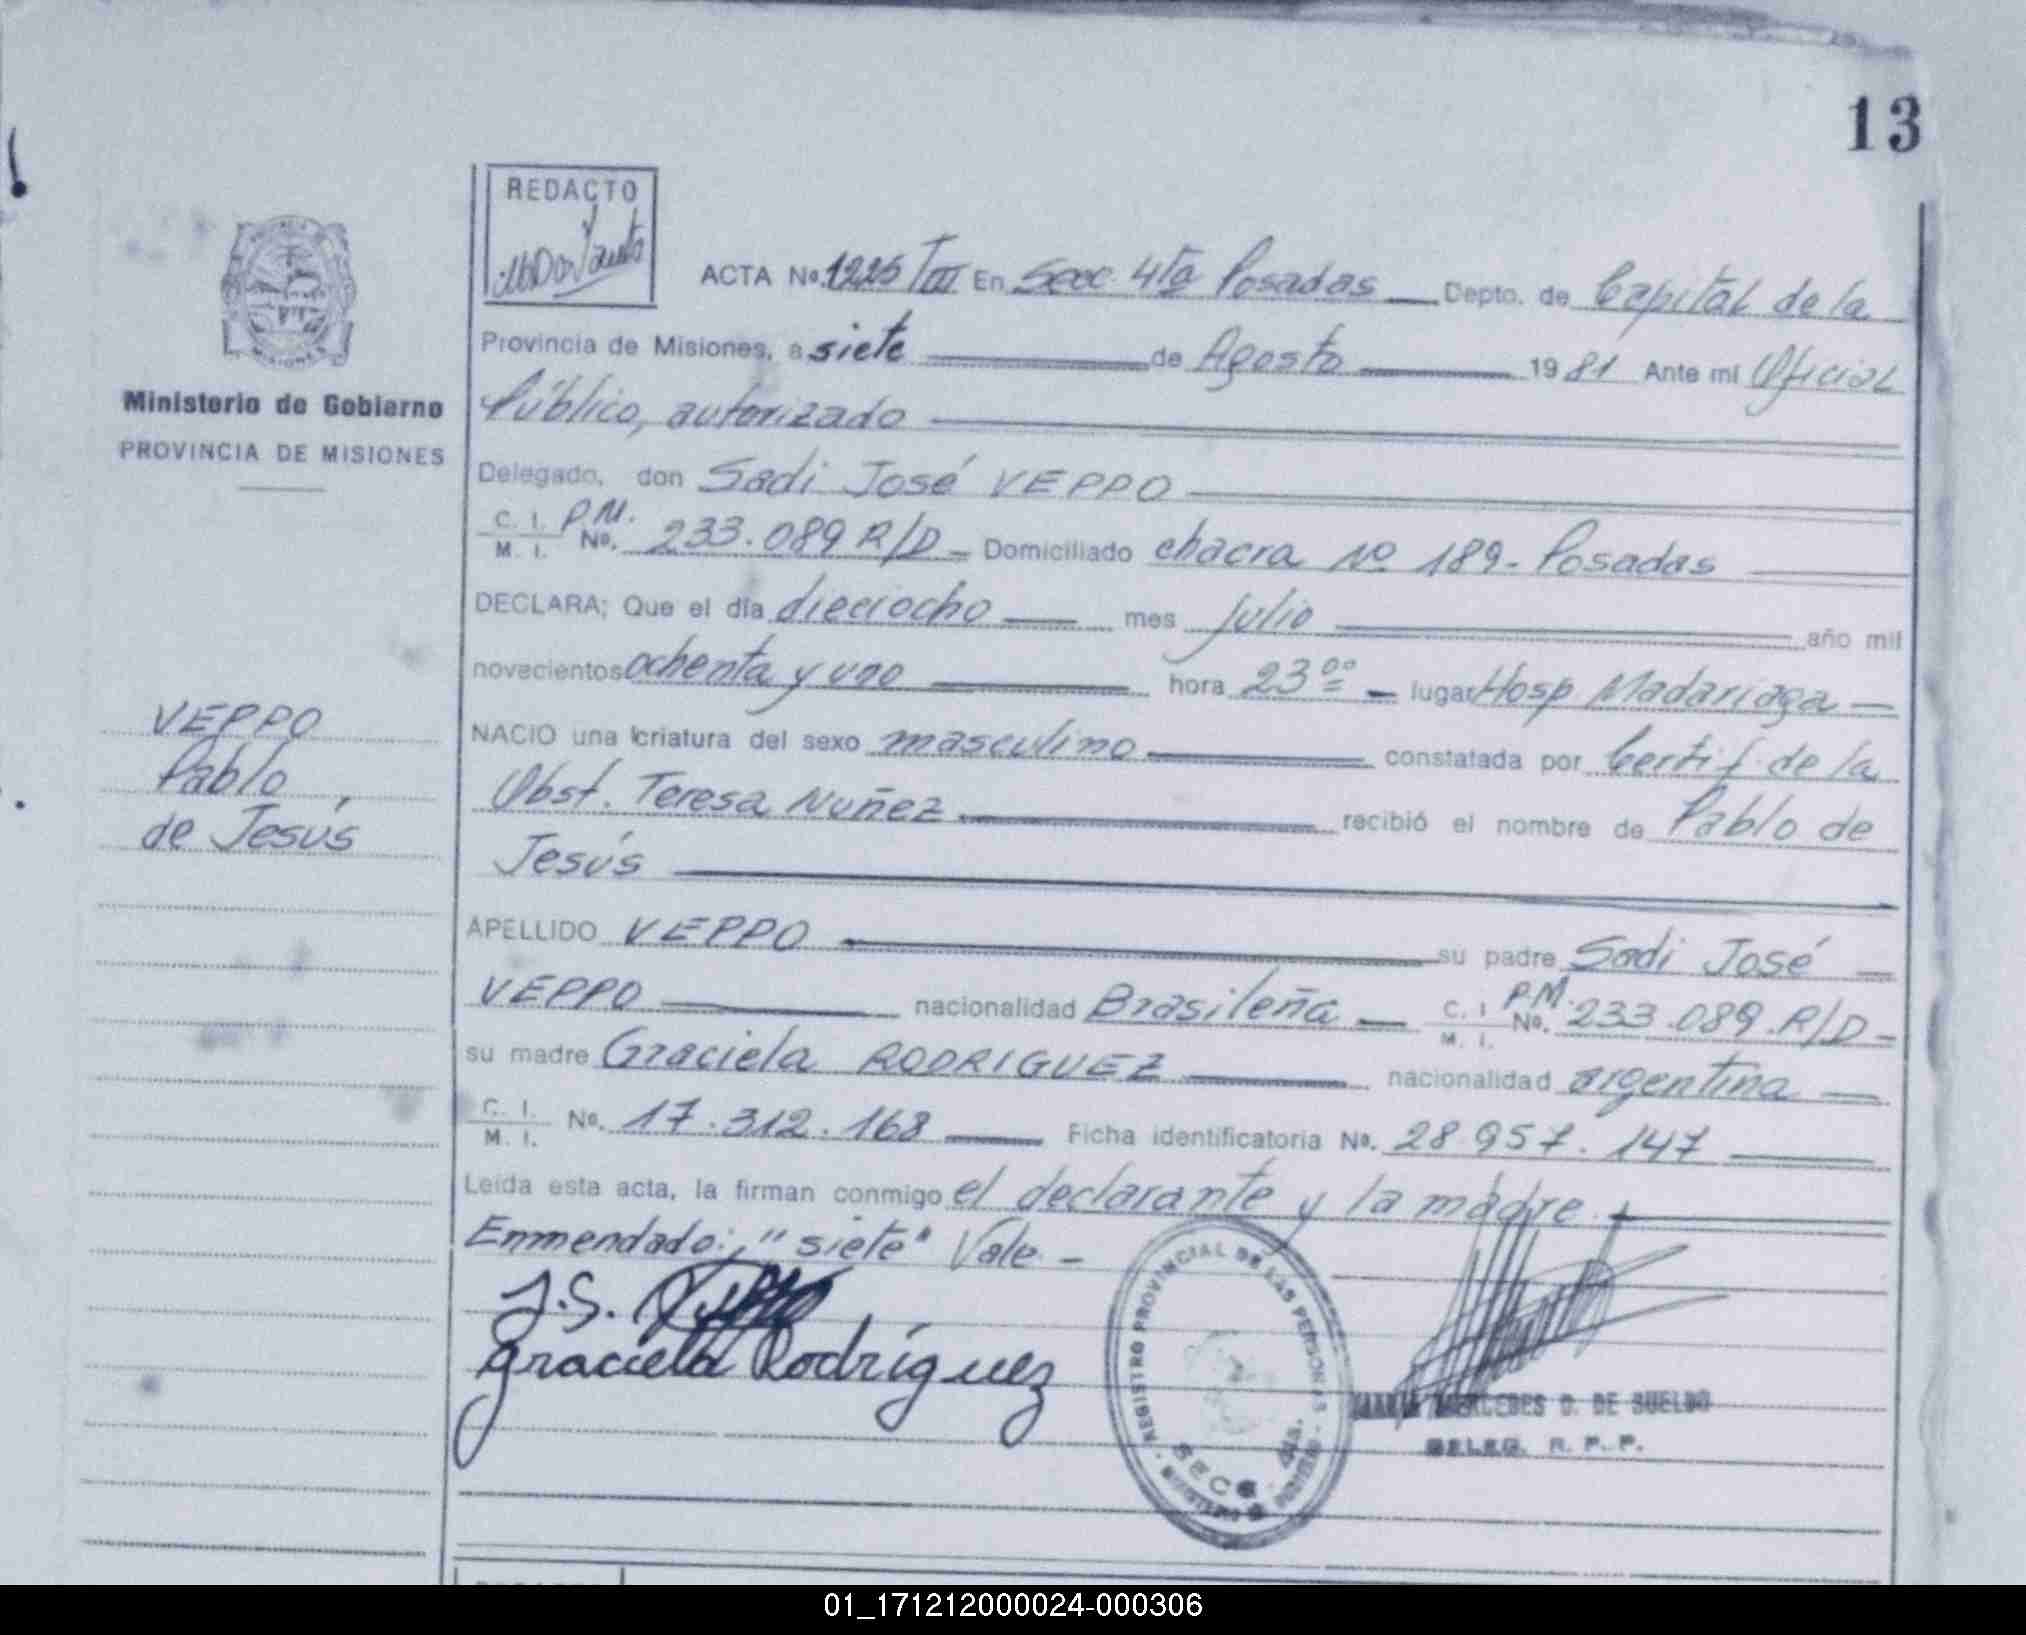 13
REDACTO
ACTA Nº 1225 TIII En Secc. 4ta Posadas Depto. de Capital de la
Provincia de Misiones, a siete de Agosto 1981 Ante mi Oficial
Ministerio de Gobierno
Público, autorizado
PROVINCIA DE MISIONES
Delegado, don Sadi José VEPPO
C. I. M. I. P.M. Nº. 233.089 R/D Domiciliado chacra Nº 189 - Posadas
DECLARA; Que el día dieciocho mes julio año mil
novecientos ochenta y uno hora 23 00 lugar Hosp Madariaga
VEPPO
Pablo
de Jesús
NACIO una criatura del sexo masculino constatada por Certif. de la
Obst. Teresa Nuñez recibió el nombre de Pablo de
Jesús
APELLIDO VEPPO su padre Sadi José
VEPPO nacionalidad Brasileña C. I. M. I. P.M. Nº. 233.089.R/D
su madre Graciela RODRIGUEZ nacionalidad argentina
C. I. M. I. Nº. 17.312.168 Ficha identificatoria Nº. 28.957.147
Leída esta acta, la firman conmigo el declarante y la madre
Enmendado: "siete" Vale -
J.S. Veppo
Graciela Rodríguez
REGISTRO PROVINCIAL DE LAS PERSONAS
SECC. 4ta.
MARIA MERCEDES D. DE SUELDO
DELEG. R. P. P.
01_171212000024-000306